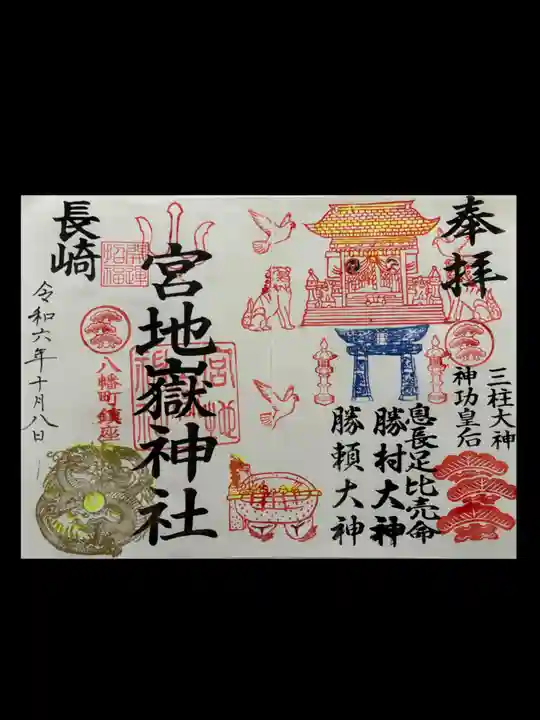 奉拝
三柱大神
神功皇后
息長足比売命
勝村大神
勝頼大神
宮地嶽神社
開運
招福
長崎
八幡町鎮座
令和六年十月八日